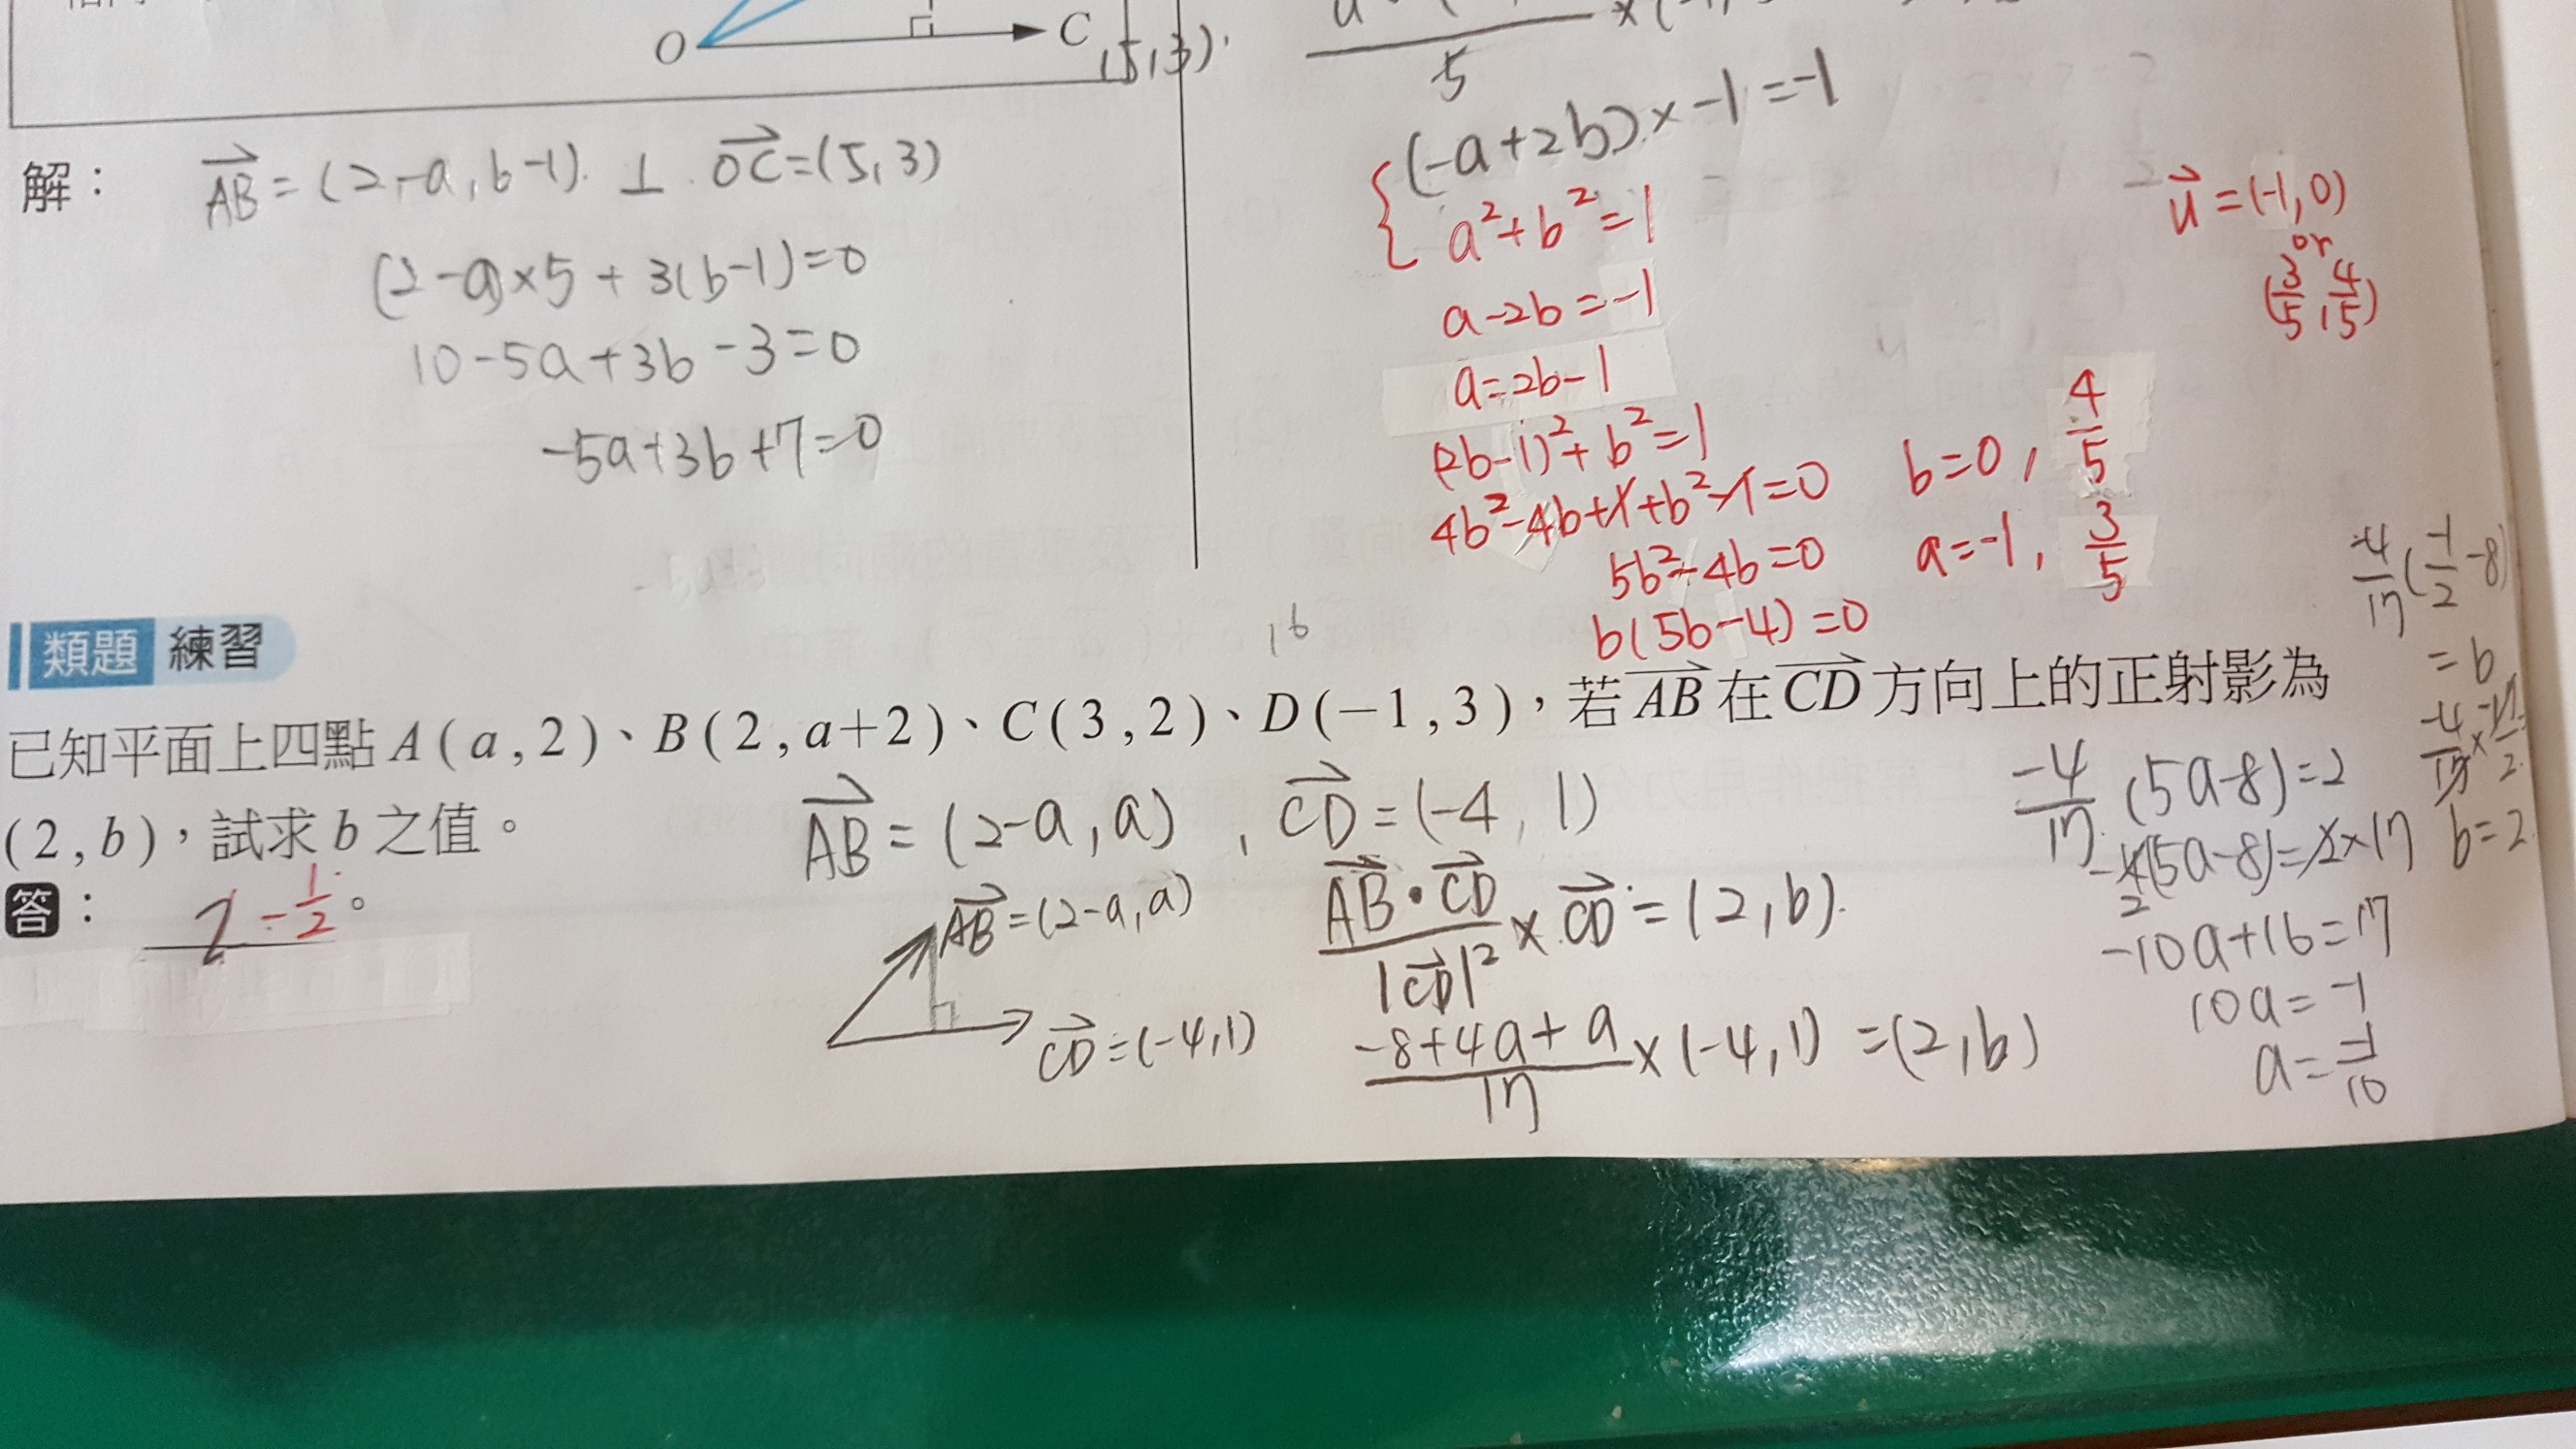 O
C
(5,3)
5
解：
AB=(2-a,b-1) ⊥ OC=(5,3)
(2-a)×5+3(b-1)=0
10-5a+3b-3=0
-5a+3b+7=0
(-a+2b)×-1=-1
a²+b²=1
a-2b=-1
a=2b-1
(2b-1)²+b²=1
4b²-4b+1+b²-1=0
5b²-4b=0
b(5b-4)=0
b=0, 4/5
a=-1, 3/5
u=(-1,0)
or
(3/5,4/5)
類題 練習
已知平面上四點 A(a,2)、B(2,a+2)、C(3,2)、D(-1,3)，若 AB 在 CD 方向上的正射影為
(2,b)，試求 b 之值。
答： 2 -1/2。
AB=(2-a,a), CD=(-4,1)
AB=(2-a,a)
CD=(-4,1)
AB·CD/|CD|²×CD=(2,b)
-8+4a+a/17×(-4,1)=(2,b)
-4/17(5a-8)=2
-4(5a-8)=2×17
2
-10a+16=17
10a=-1
a=-1/10
-4/17(-1/2-8)
=b
-4/17×-17/2
b=2